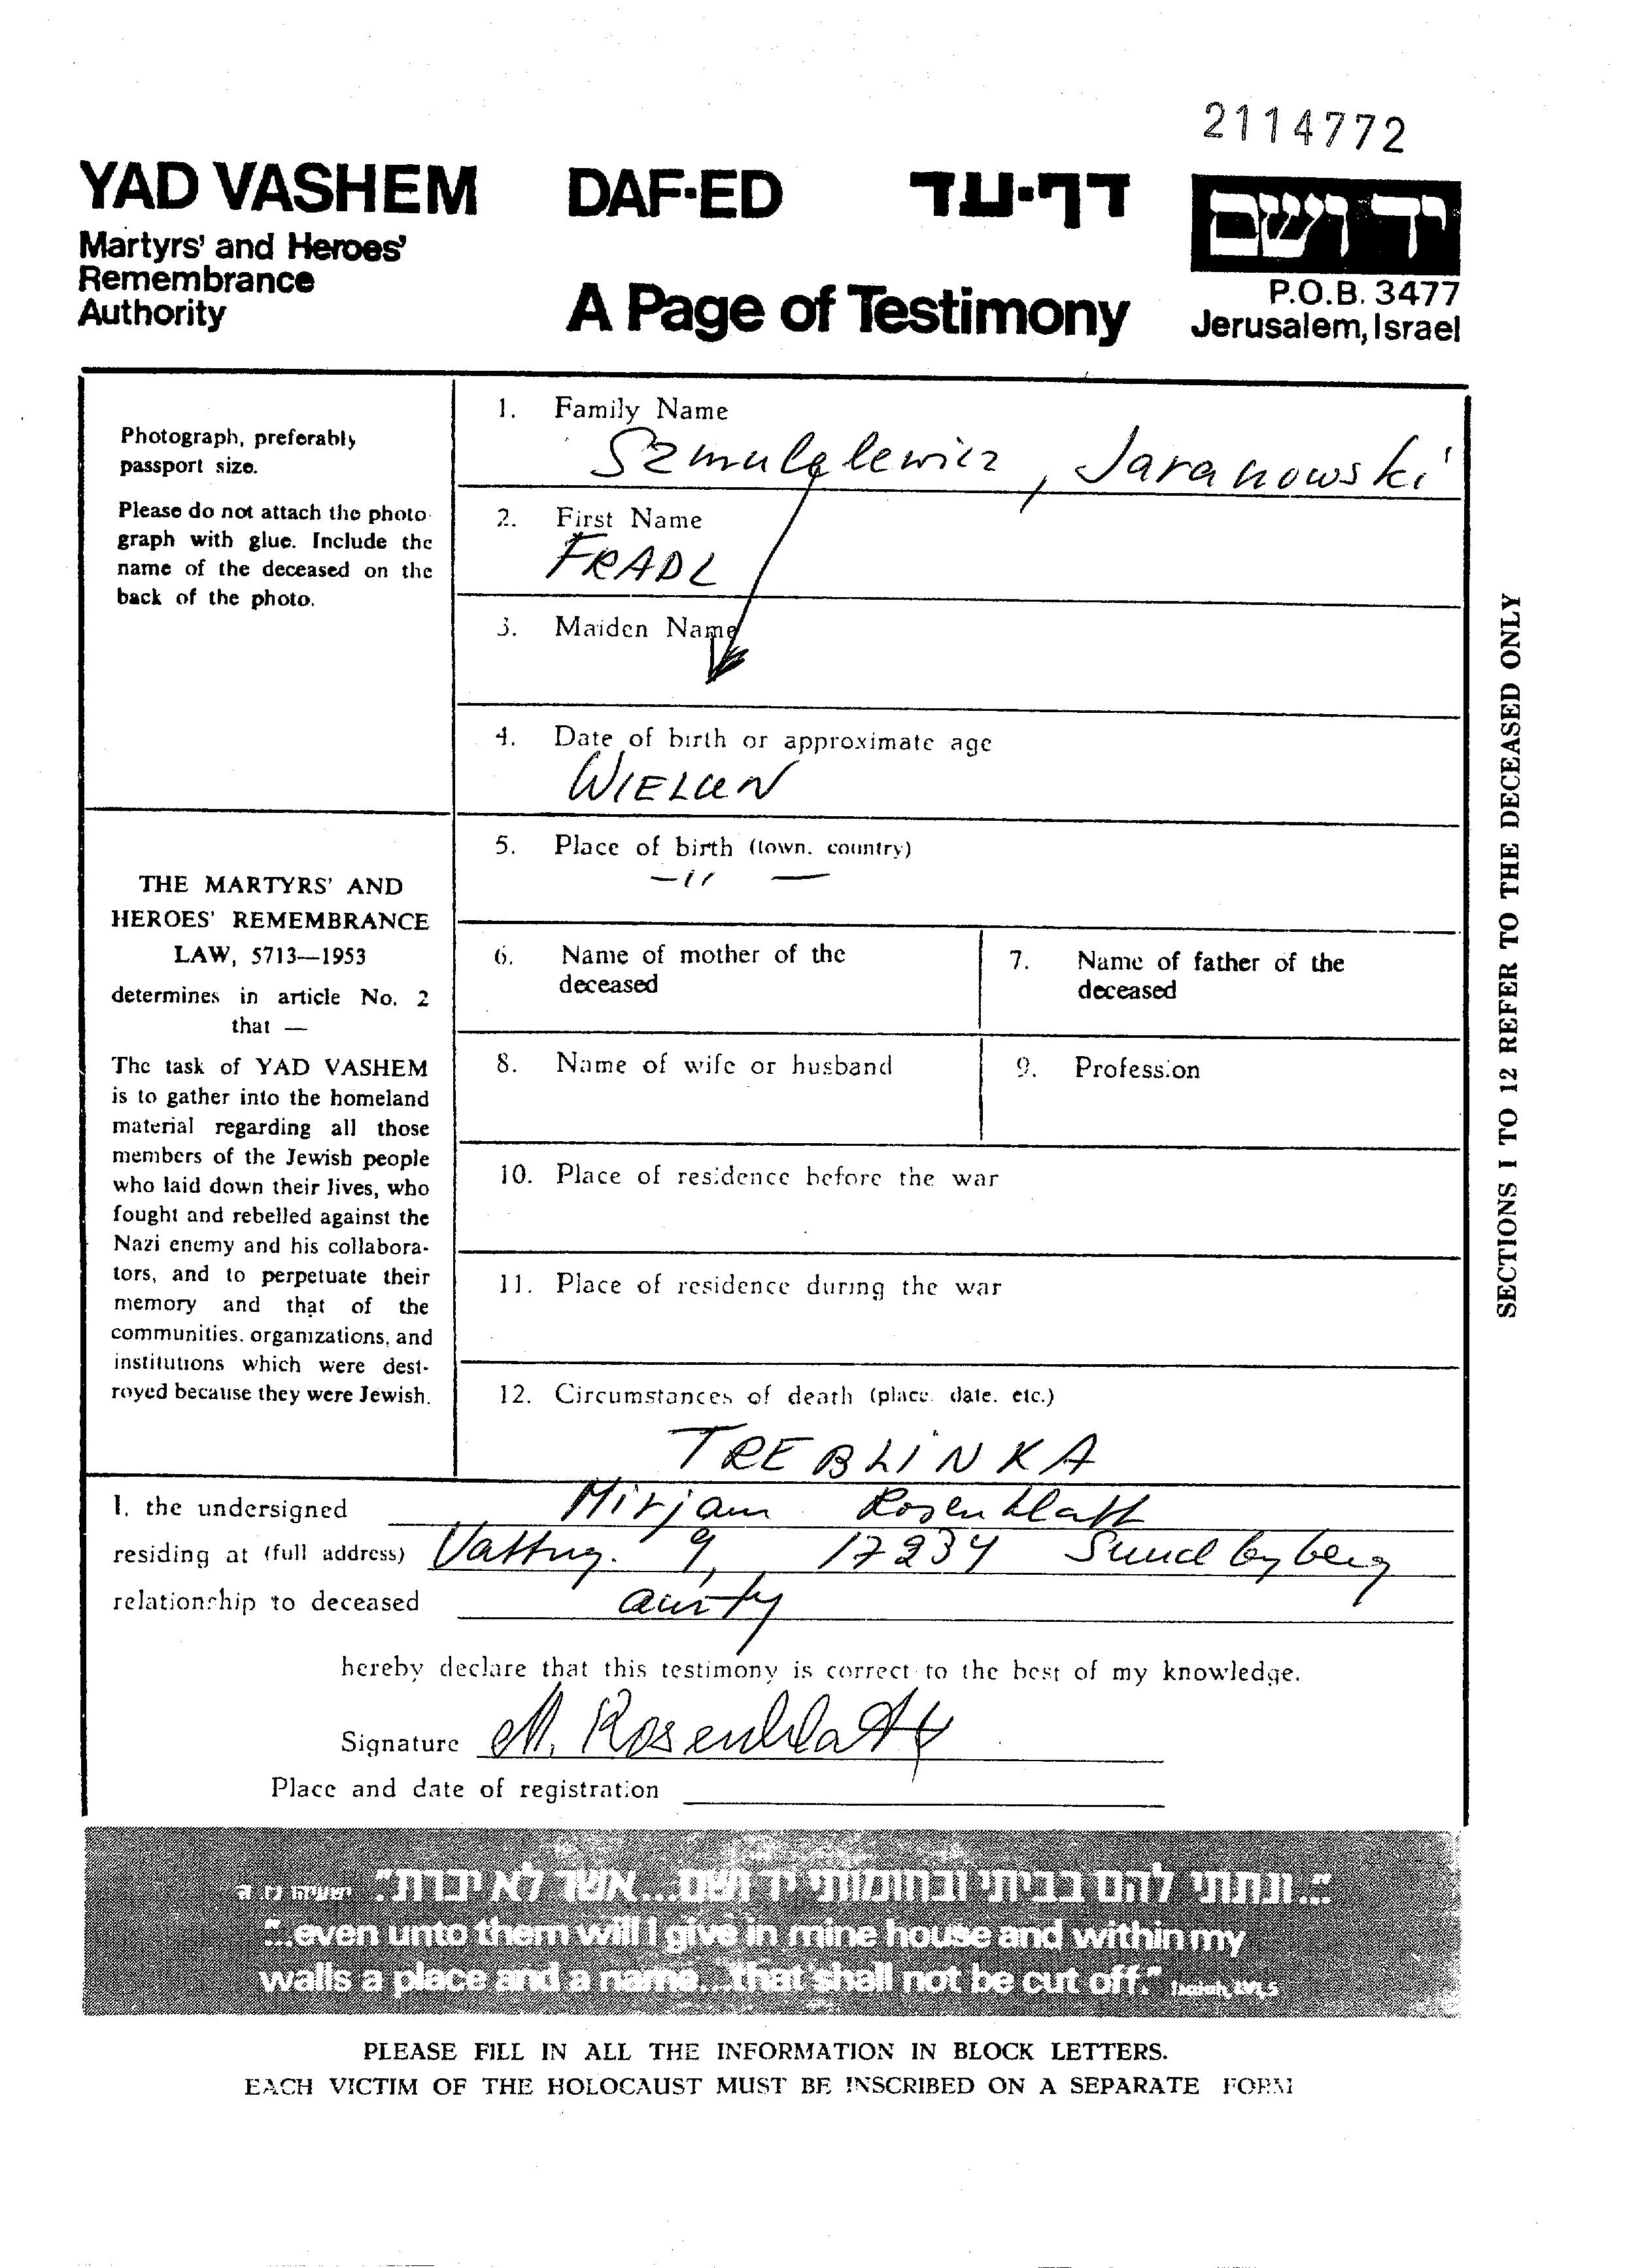 2114772
YAD VASHEM DAF-ED דף-עד יד ושם
Martyrs' and Heroes'
Remembrance
Authority
A Page of Testimony
P.O.B. 3477
Jerusalem, Israel
Photograph, preferably
passport size.
Please do not attach the photo-
graph with glue. Include the
name of the deceased on the
back of the photo.
THE MARTYRS' AND
HEROES' REMEMBRANCE
LAW, 5713—1953
determines in article No. 2
that —
The task of YAD VASHEM
is to gather into the homeland
material regarding all those
members of the Jewish people
who laid down their lives, who
fought and rebelled against the
Nazi enemy and his collabora-
tors, and to perpetuate their
memory and that of the
communities, organizations, and
institutions which were dest-
royed because they were Jewish.
1. Family Name
Szmulelewicz, Jaranowski
2. First Name
FRADL
3. Maiden Name
4. Date of birth or approximate age
WIELUN
5. Place of birth (town, country)
—11 —
6. Name of mother of the
deceased
7. Name of father of the
deceased
8. Name of wife or husband
9. Profession
10. Place of residence before the war
11. Place of residence during the war
12. Circumstances of death (place, date, etc.)
TREBLINKA
SECTIONS 1 TO 12 REFER TO THE DECEASED ONLY
I, the undersigned Mirjam Rosenblatt
residing at (full address) Vattug. 9, 17234 Sundbyberg
relationship to deceased aunty
hereby declare that this testimony is correct to the best of my knowledge.
Signature M. Rosenblatt
Place and date of registration
"...ונתתי להם בביתי ובחומותי יד ושם...אשר לא יכרת." ישעיהו נו, ה
"...even unto them will I give in mine house and within my
walls a place and a name...that shall not be cut off." Isaiah, LVI,5
PLEASE FILL IN ALL THE INFORMATION IN BLOCK LETTERS.
EACH VICTIM OF THE HOLOCAUST MUST BE INSCRIBED ON A SEPARATE FORM